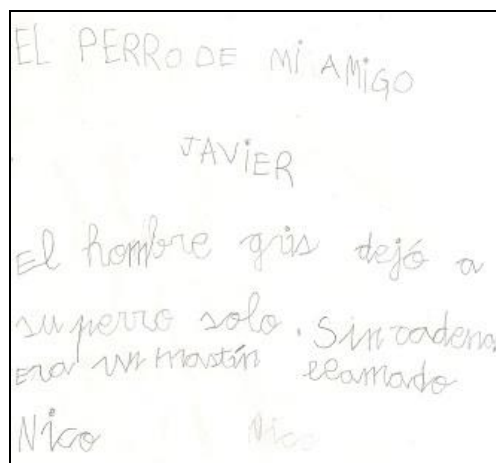 EL PERRO DE Mi AMiGO
JAViER
El hombre gris dejó a
su perro solo. Sin cadena
era un mastín llamado
Nico Nico